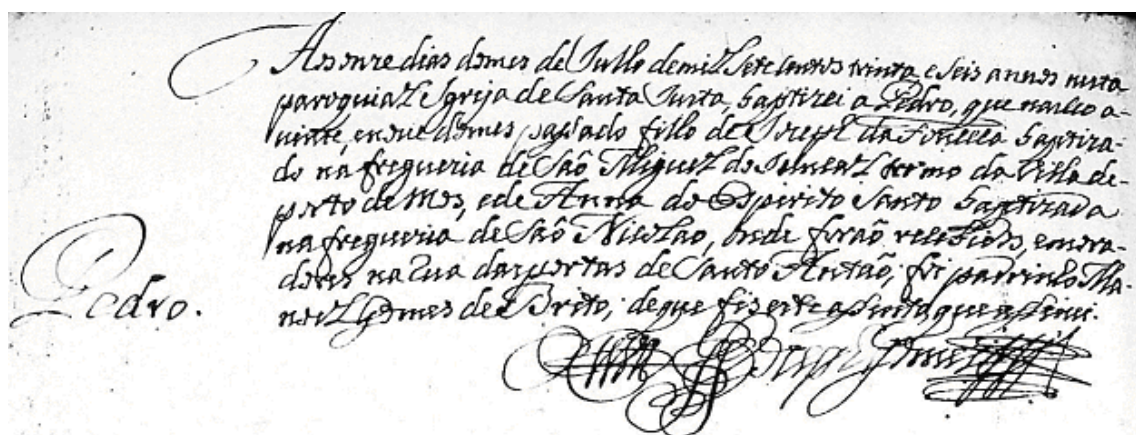 Aos onze dias do mes de Julho de mil Sete centos trinta e seis annos nesta
paroquial Igrija de Santa Justa, baptizei a Pedro, que nasceo a-
vinte, enove do mes passado filho de Joseph da Fonseca baptiza-
do na freguezia de Saõ Miguel do termo da Villa de-
porto de Mos, e de Anna do Espirito Santo baptizada
na freguezia de Saõ Nicolao, onde foraõ recebidos, emora-
dores na Rua das portas de Santo Antaõ; foi padrinho Ma-
noel Gomes de Brito; de que fiz este assento que assinei.
Pedro.